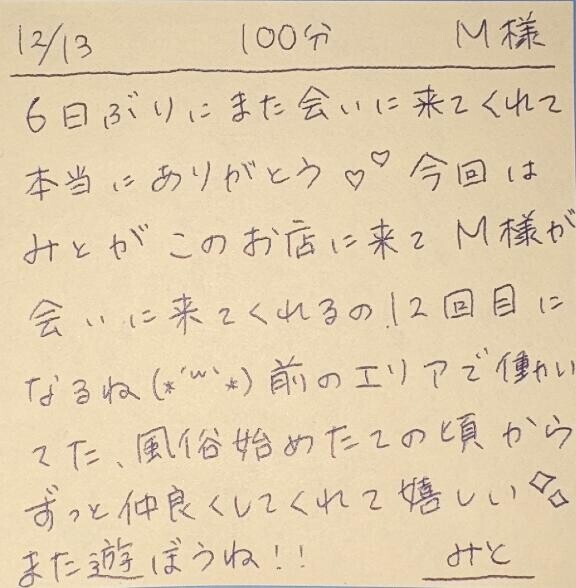 12/13 100分 M様
6日ぶりにまた会いに来てくれて
本当にありがとう♡♡ 今回は
みとがこのお店に来てM様が
会いに来てくれるの、12回目に
なるね(*´꒳`*)前のエリアで働い
てた、風俗始めたての頃から
ずっと仲良くしてくれて嬉しい✧✧
また遊ぼうね!! みと